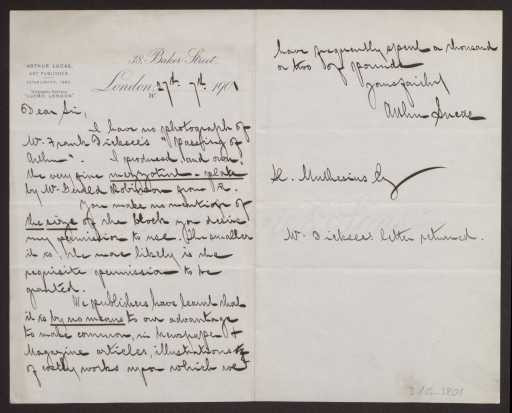 ARTHUR LUCAS,
ART PUBLISHER.
38. Baker Street,
London, 27th 7th 1901
W.
Dear Sir,
I have no photograph of
Mr Frank Dicksee's "Passing of
Arthur". I produced (and own)
the very fine mezzotint plate
by Mr Gerald Robinson from it.
You make no mention of
the size of the block you desire
my permission to use. The smaller
it is, the more likely is the
requisite permission to be
granted.
We publishers have learnt that
it is by no means to our advantage
to make common, in Newspaper &
Magazine articles, illustrations
of costly works upon which we
have frequently spent a thousand
or two of pounds
Yours faithfully
Arthur Lucas
H. Muthesius Esq
Mr Dicksee's letter returned.